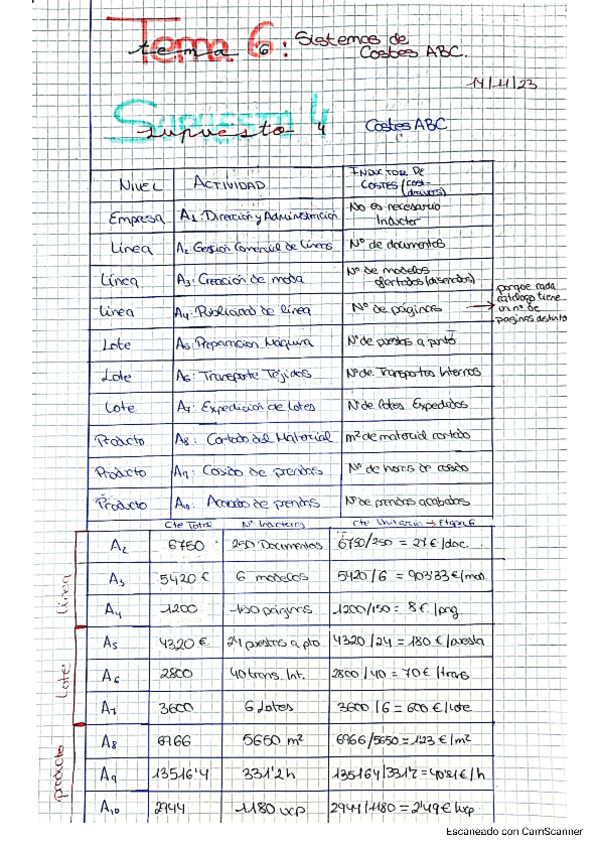 Tema 6:
tema 6
Sistemas de
Costes ABC.
14/11/23
Supuesto 4
supuesto 4
Costes ABC
NIVEL ACTIVIDAD INDUCTOR DE COSTES (cost-drivers)
Empresa A1: Dirección y Administración No es necesario Inductor
Línea A2 Gestión Comercial de Líneas Nº de documentos
Línea A3: Creación de moda Nº de modelos ofertados (diseñados)
Línea A4: Publicidad de línea Nº de páginas → porque cada catálogo tiene un nº de páginas distinto
Lote A5: Preparación Máquina Nº de puestas a punto
Lote A6: Transporte Tejidos Nº de Transportes Internos
Lote A7: Expedición de Lotes Nº de Lotes Expedidos
Producto A8: Cortado del Material m² de material cortado
Producto A9: Cosido de prendas Nº de horas de cosido
Producto A10: Acabado de prendas Nº de prendas acabadas
Cte Total Nº Inductores cte Unitario → Etapa 6
Línea
A2 6750 250 Documentos 6750/250 = 27 €/doc.
A3 5420 € 6 modelos 5420/6 = 903'33 €/mod.
A4 1200 150 páginas 1200/150 = 8 €/pag
Lote
A5 4320 € 24 puestas a pto 4320/24 = 180 €/puesta
A6 2800 40 trans. Int. 2800/40 = 70 €/trans
A7 3600 6 Lotes 3600/6 = 600 €/Lote
producto
A8 6966 5650 m² 6966/5650 = 1'23 €/m²
A9 13516'4 331'2 h 13516'4/331'2 = 40'81 €/h
A10 2944 1180 ucp 2944/1180 = 2'49 €/ucp
Escaneado con CamScanner